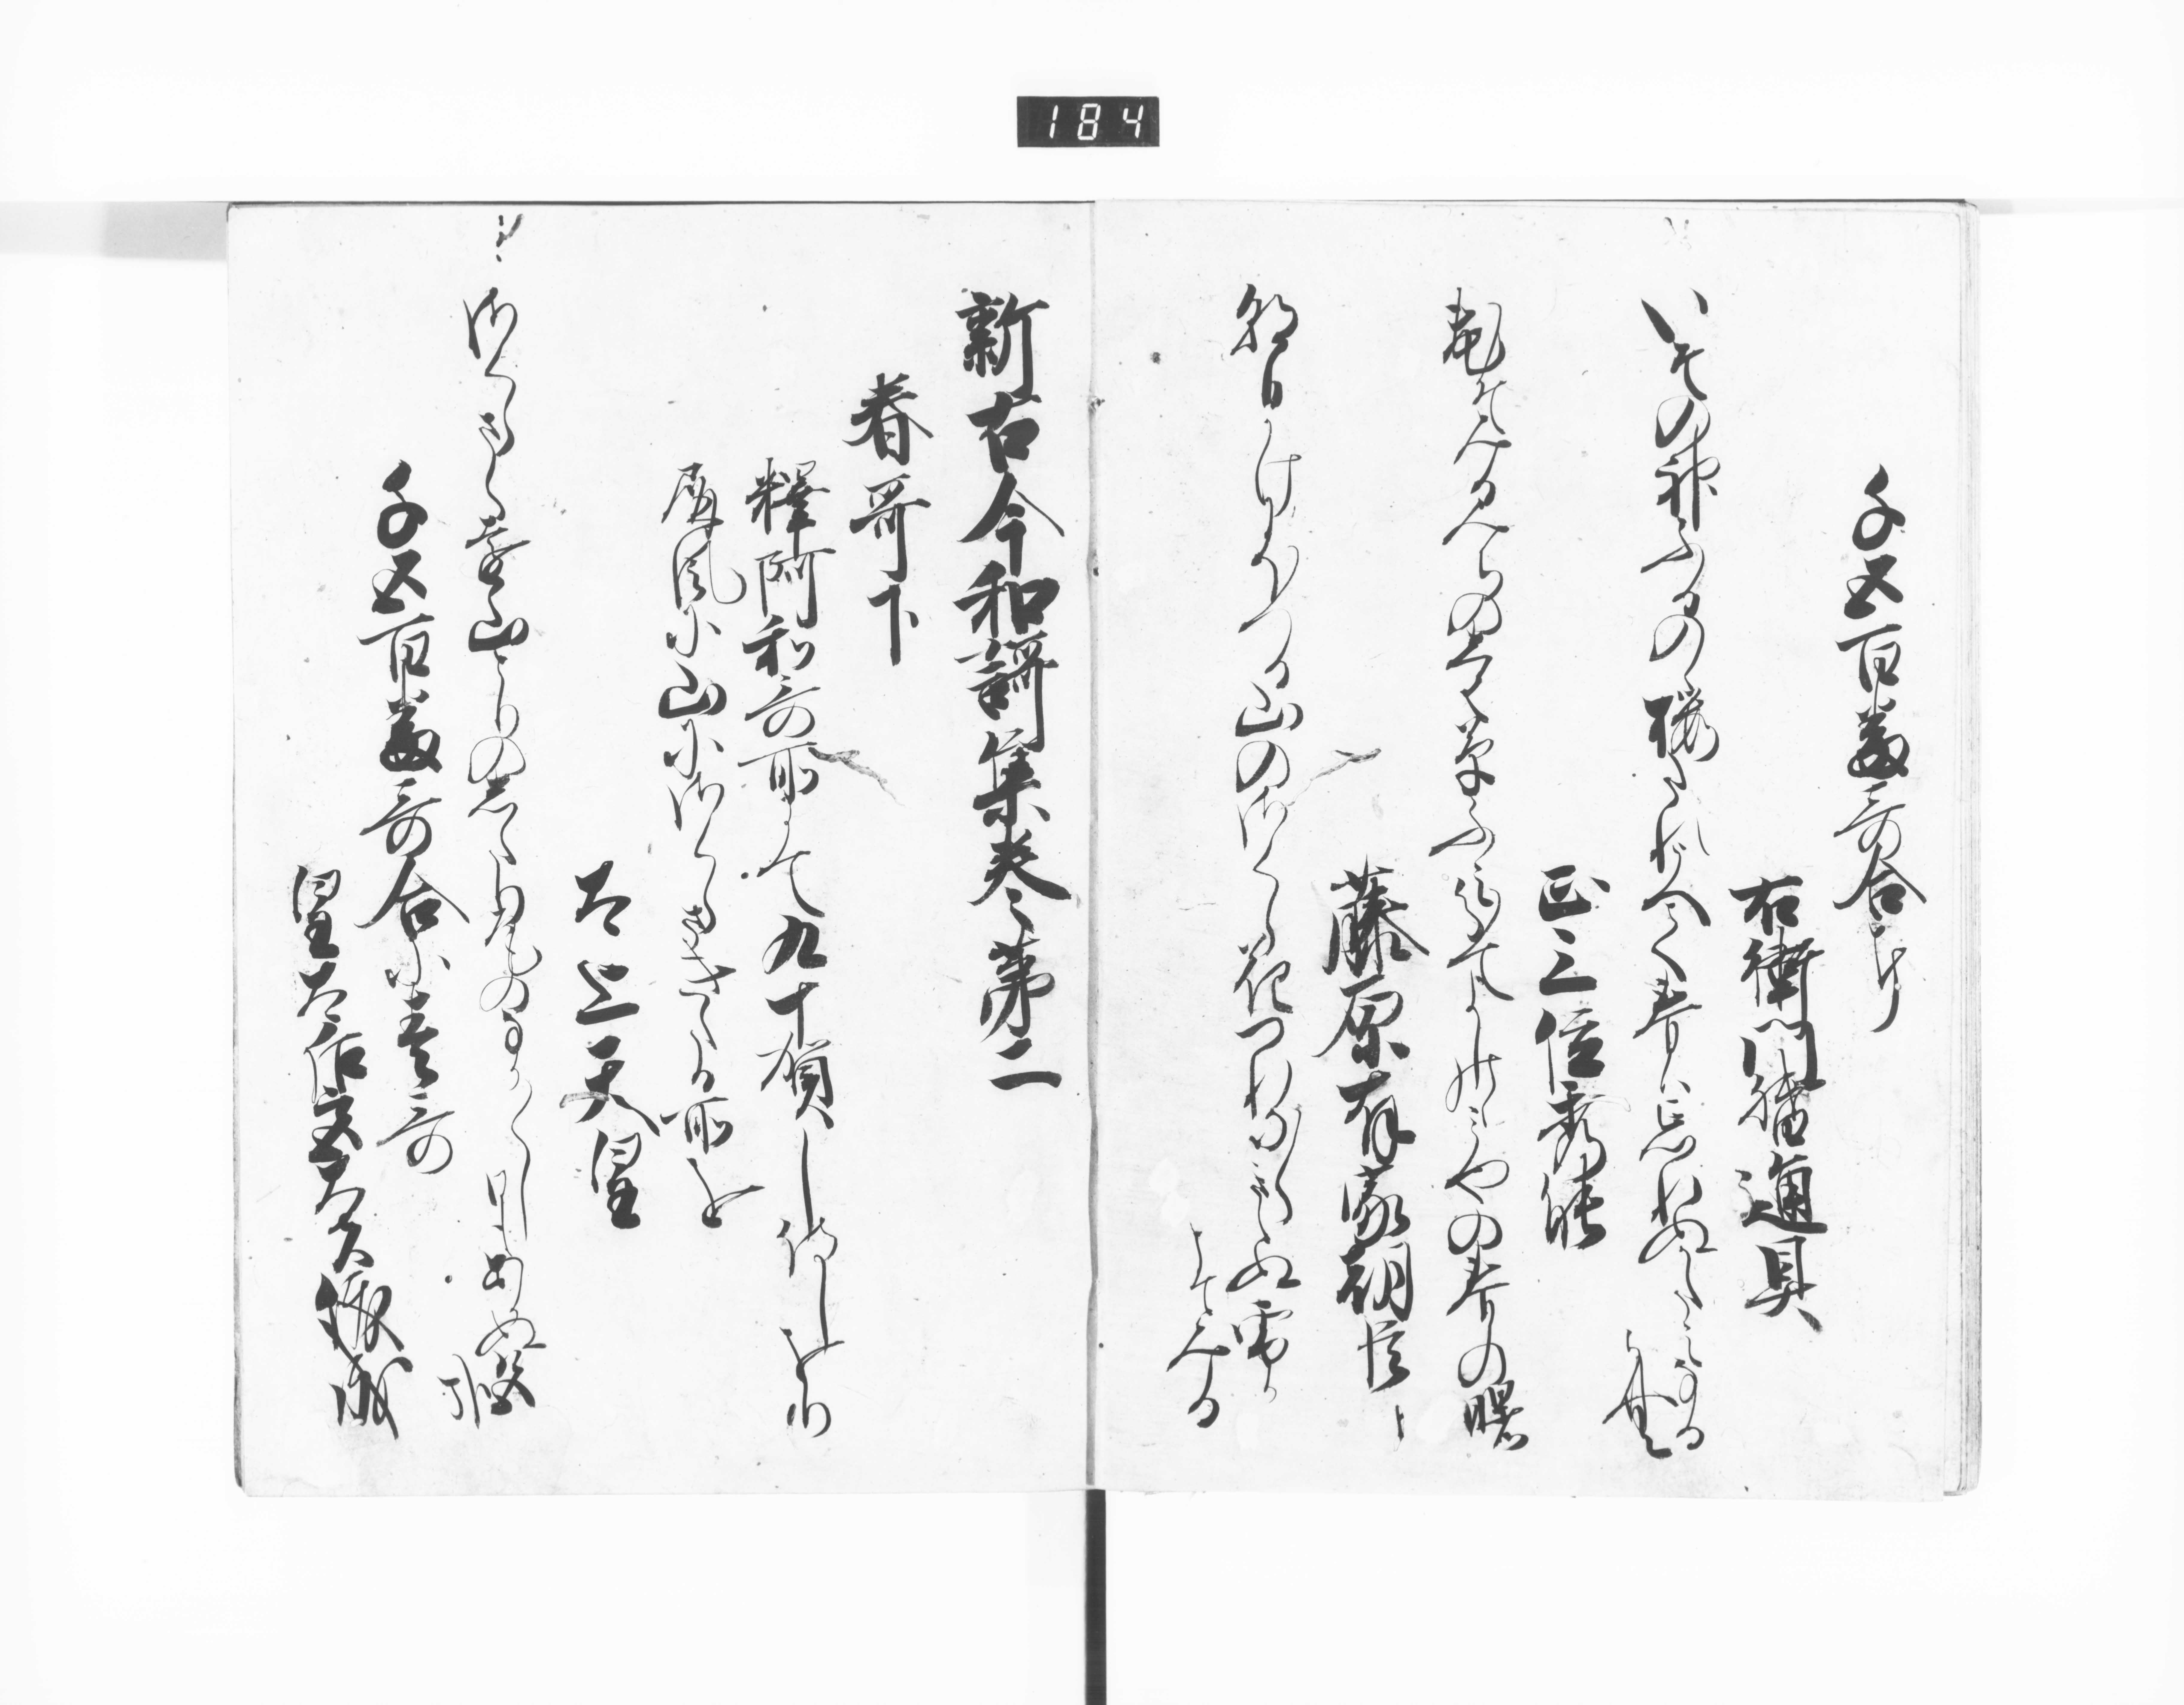 184
千五百番哥合に
右衛門督通具
いその神ふるのゝ桜たれうへて春は忘れぬかたみなる
らん
正三位季能
花そみるみちのしは草ふみわけてよしのゝみやの春の曙
藤原有家朝臣
朝日かけにほへる山のさくら花つれなくきえぬ雪か
とそみる
新古今和謌集巻第二
春哥下
釋阿和哥所にて九十賀し侍しをり
屏風に山にさくらさきたる所を
太上天皇
さくらさく遠山とりのしたりおのなか〱し日もあかぬ色
哉
千五百番哥合に春哥
皇太后宮大夫俊成